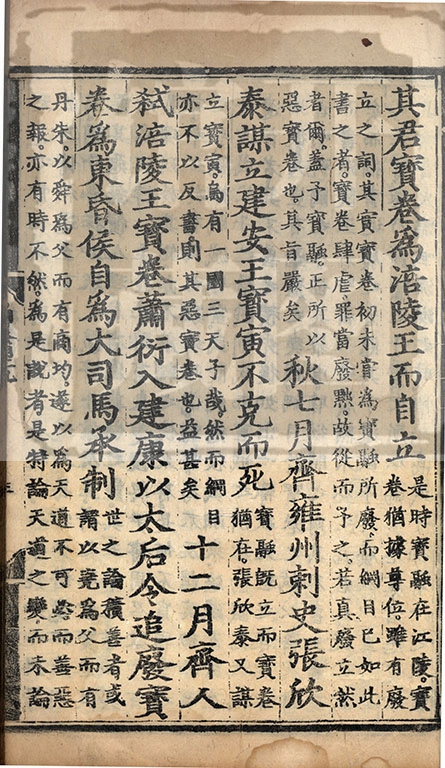 其君寶卷爲涪陵王而自立
是時寶融在江陵。寶
卷猶據尊位。雖有廢
立之詞。其實寶卷初未嘗爲寶融所廢。而綱目已如此
書之者。寶卷肆虐。罪當廢黜。故從而予之。若真廢立然
者爾。蓋予寶融。正所以
惡寶卷也。其旨嚴矣
秋七月齊雍州刺史張欣
泰謀立建安王寶寅不克而死
寶融旣立而寶卷
猶在。張欣泰又謀
立寶寅。烏有一國三天子哉。然而綱目
亦不以反書。則其惡寶卷也。益甚矣
十二月齊人
弑涪陵王寶卷蕭衍入建康以太后令追廢寶
卷爲東昏侯自爲大司馬承制
世之論積善者或
謂以堯爲父而有
丹朱。以舜爲父而有商均。遂以爲天道不可必而善惡
之報。亦有時不然。爲是說者是特論天道之變而未論